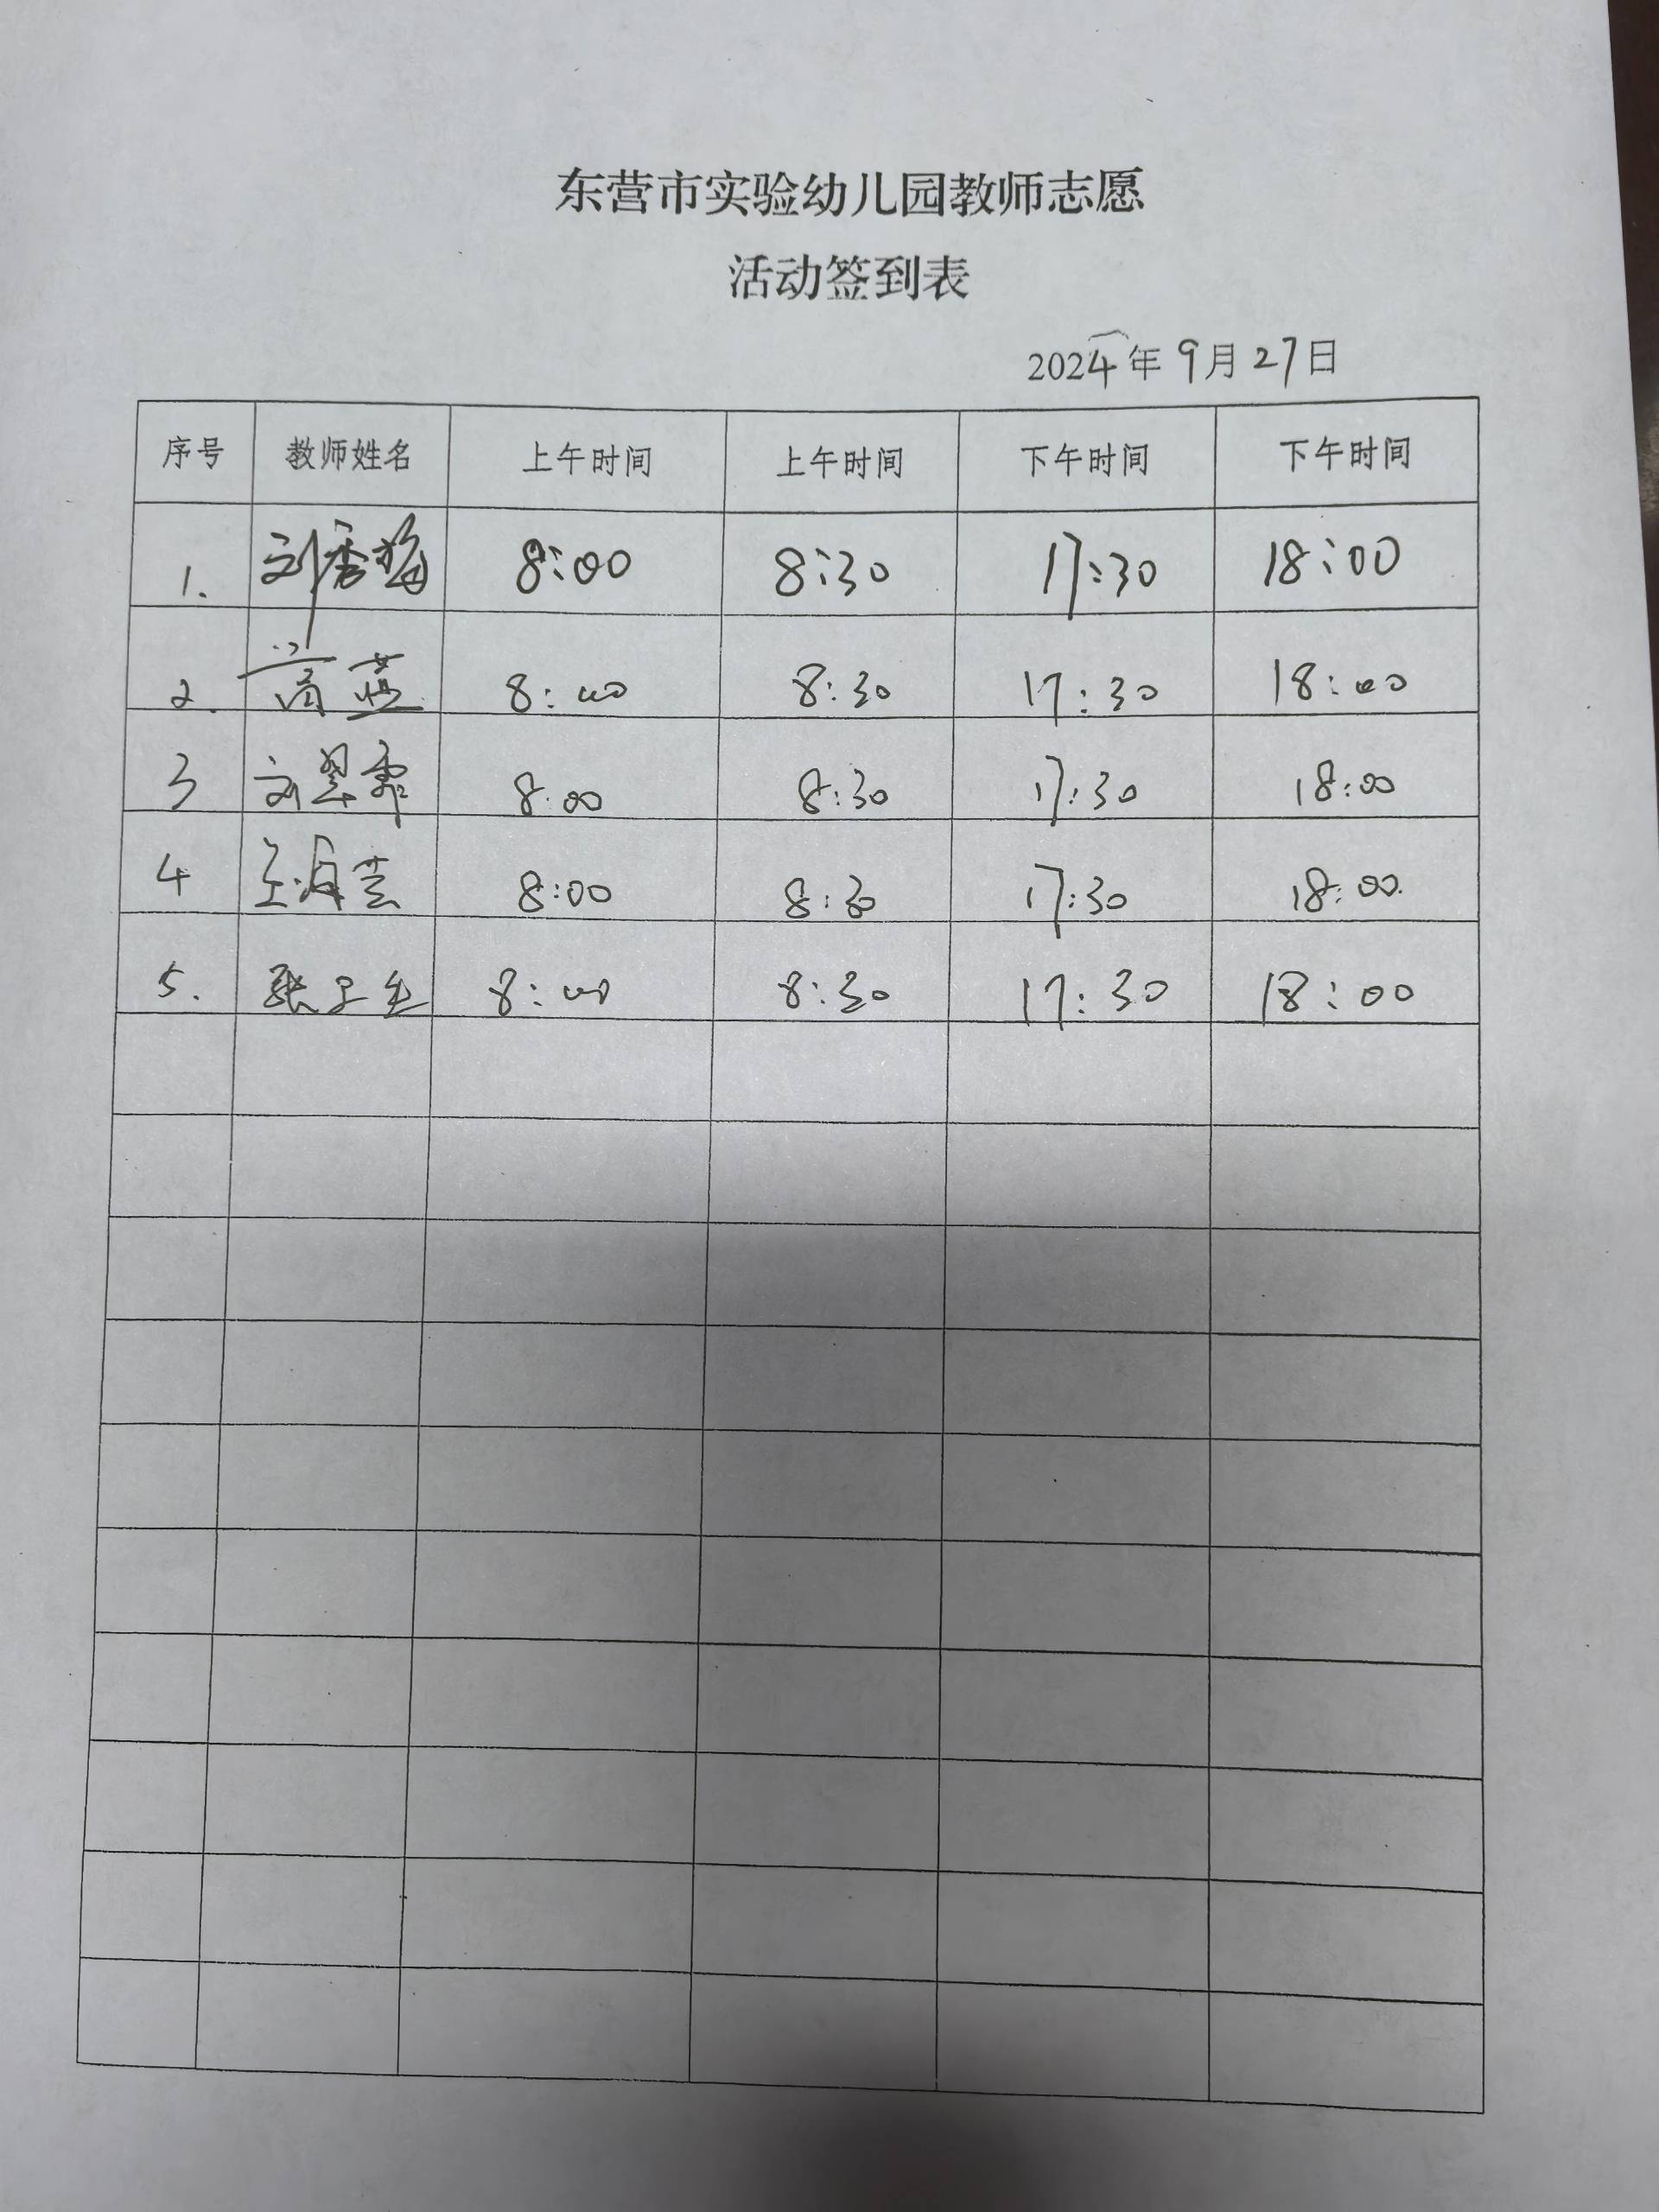 东营市实验幼儿园教师志愿
活动签到表
2024年9月27日
序号 教师姓名 上午时间 上午时间 下午时间 下午时间
1. 刘秀梅 8:00 8:30 17:30 18:00
2. 8:00 8:30 17:30 18:00
3 刘翠霞 8:00 8:30 17:30 18:00
4 王海芸 8:00 8:30 17:30 18:00
5. 8:00 8:30 17:30 18:00